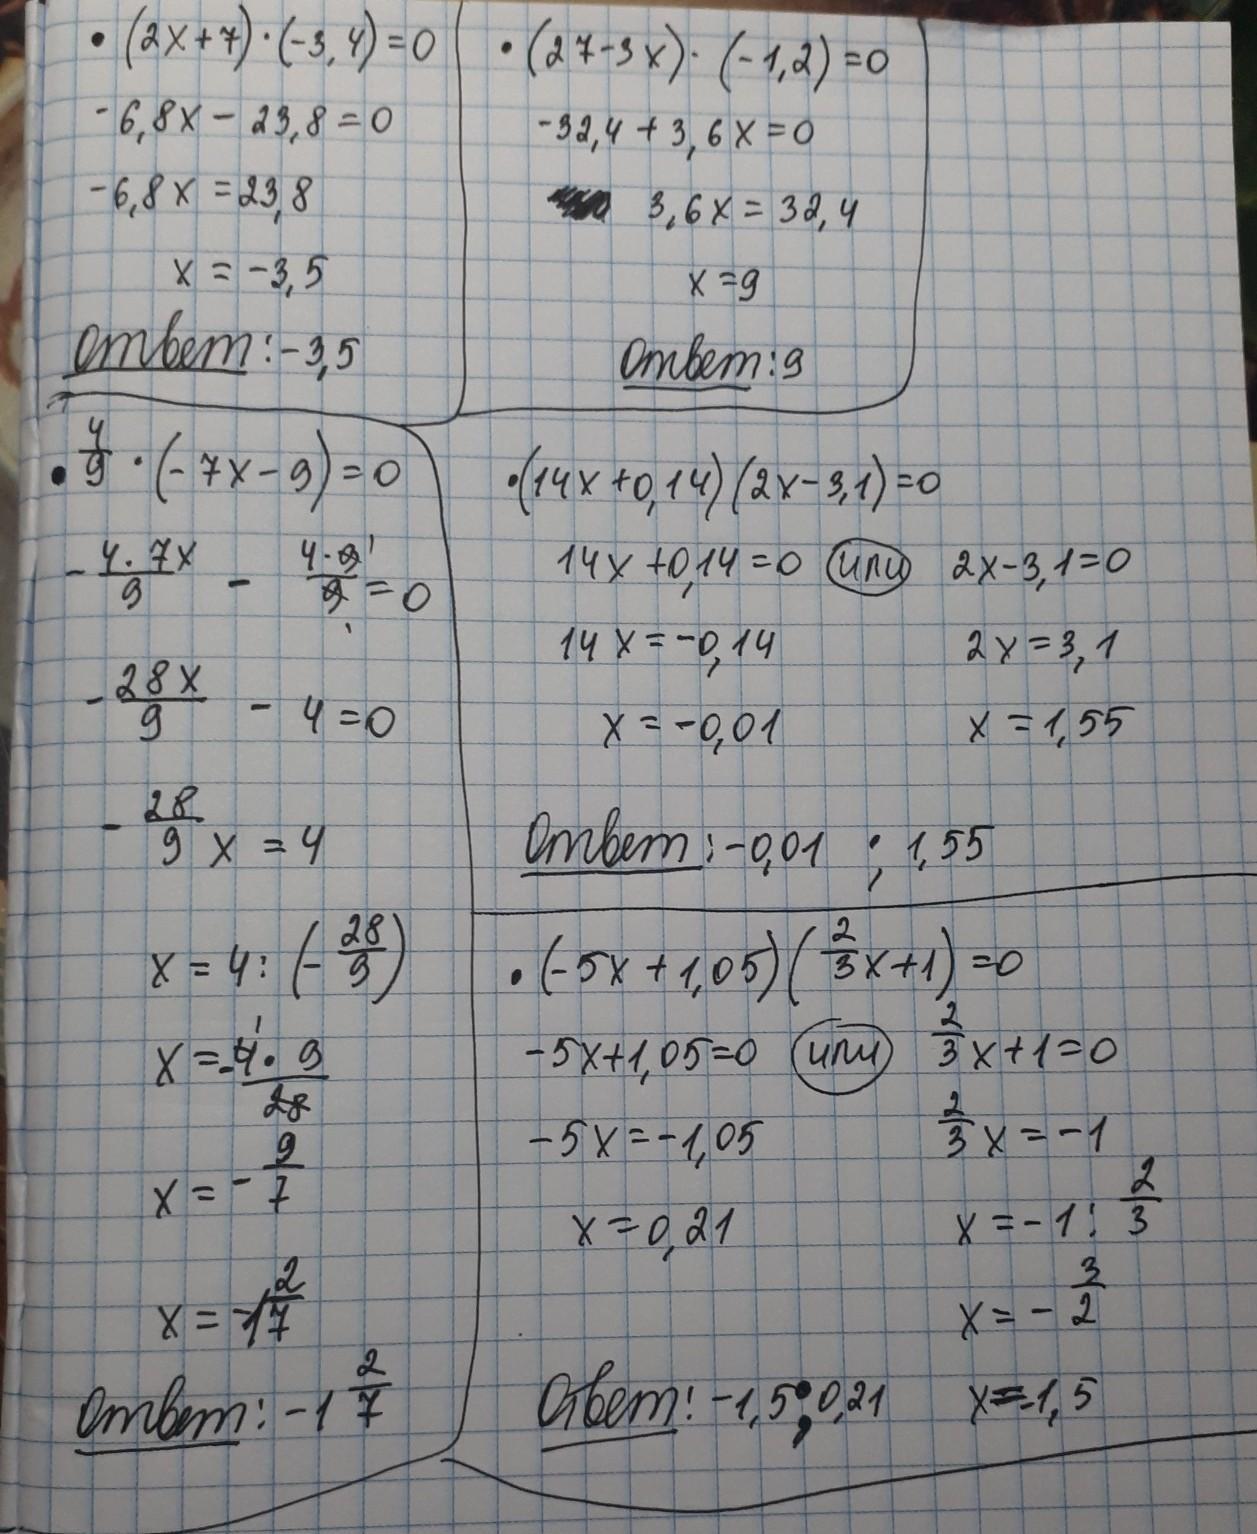 • (2x+7)·(-3,4)=0
-6,8x - 23,8=0
-6,8x=23,8
x=-3,5
Ответ: -3,5
• (27-3x)·(-1,2)=0
-32,4+3,6x=0
3,6x=32,4
x=9
Ответ: 9
• 4/9 · (-7x-9)=0
- 4·7x/9 - 4·9/9 =0
- 28x/9 - 4=0
- 28/9 x = 4
x = 4 : (- 28/9)
x = -4·9/28
x = - 9/7
x = -1 2/7
Ответ: -1 2/7
• (14x+0,14)(2x-3,1)=0
14x+0,14=0 или 2x-3,1=0
14x=-0,14 2x=3,1
x=-0,01 x=1,55
Ответ: -0,01 ; 1,55
• (-5x+1,05)(2/3 x+1)=0
-5x+1,05=0 или 2/3 x+1=0
-5x=-1,05 2/3 x=-1
x=0,21 x=-1 : 2/3
x=- 3/2
Ответ: -1,5; 0,21 x=-1,5